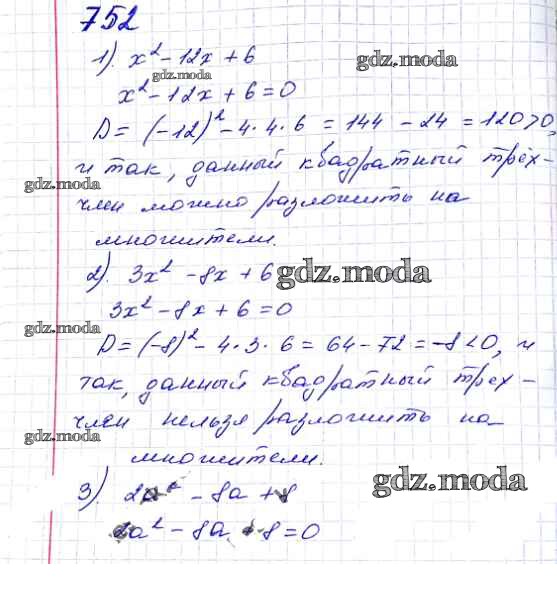 752
1). x² - 12x + 6
gdz.moda
gdz.moda
x² - 12x + 6 = 0
D = (-12)² - 4·4·6 = 144 - 24 = 120 > 0,
и так, данный квадратный трёх-
gdz.moda
член можно разложить на
множители.
2). 3x² - 8x + 6
gdz.moda
3x² - 8x + 6 = 0
gdz.moda
D = (-8)² - 4·3·6 = 64 - 72 = -8 < 0, и
так, данный квадратный трех-
член нельзя разложить на
gdz.moda
множители.
gdz.moda
3). 2a² - 8a + 8
2a² - 8a + 8 = 0
gdz.moda